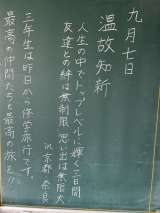 九月七日
温故知新
人生の中でトップレベルに輝く三日間
友達との絆は無制限、思い出は無限大
in 京都・奈良
三年生は昨日から修学旅行です。
最高の仲間たちと最高の旅を!!